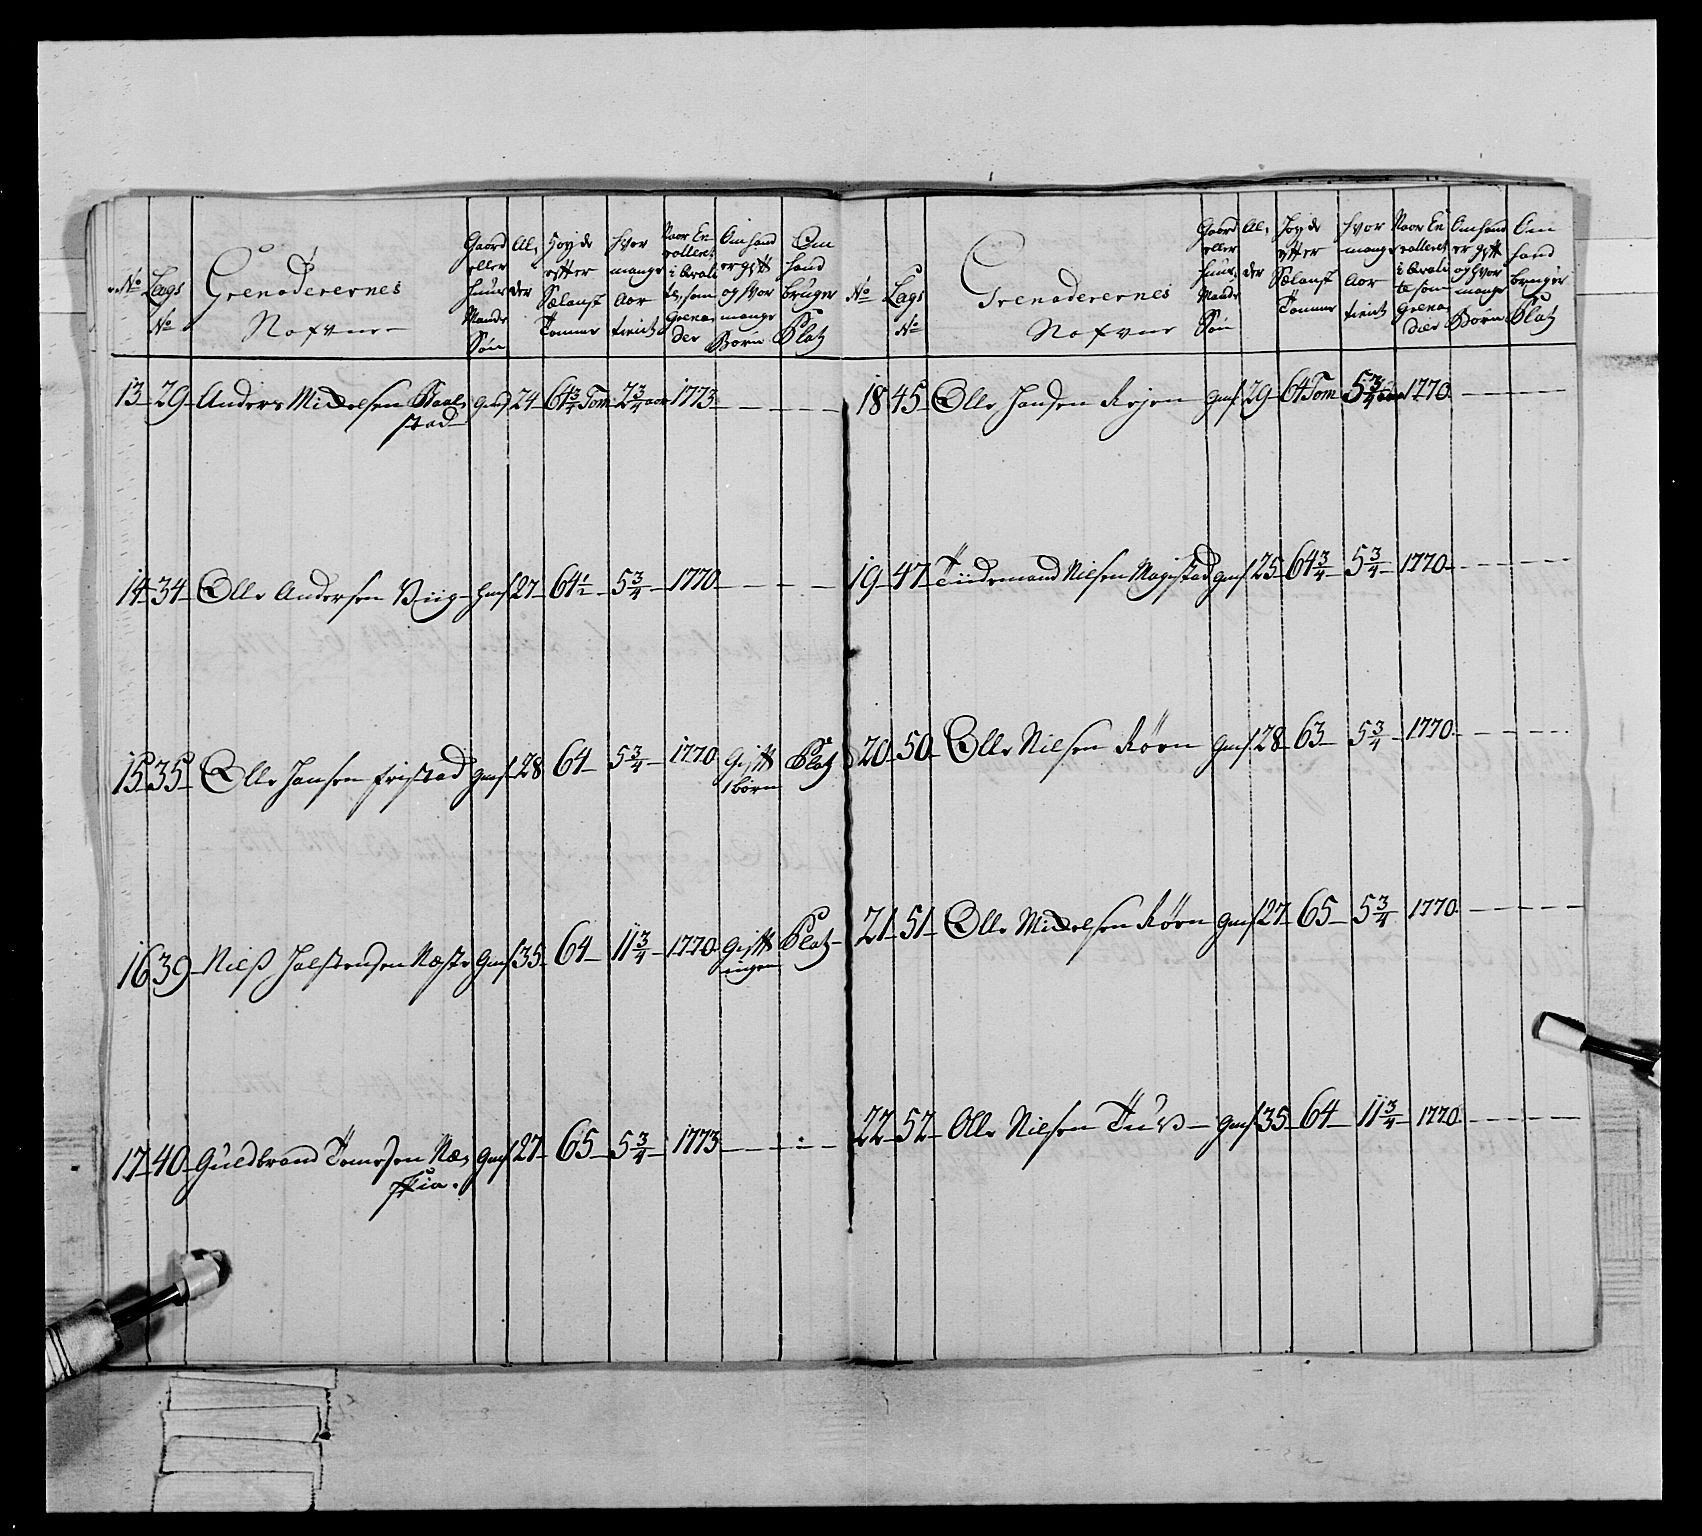 No
Lags No
Grenaderernes Nafvne
Gaord eller Huus Mands Søn
Alder
Høyde efter Sælansk Tommer
Hvor mange Aar tient
Naar Enrolleret i qvalite som Grenader
Om hand er gift og hvor mange Børn
Om hand bruger Platz
13 29 Anders Mickelsen Baalstad gms 24 64 3/4 Tom 2 3/4 aar 1773 - - -
14 34 Olle Andersen Viig hms 27 64 1/2 5 3/4 1770 - - -
15 35 Olle Jansen Fristad gms 28 64 5 3/4 1770 Gift 1 børn Platz
16 39 Nilß Halstensen Næste Gms 35 64 11 3/4 1770 Gift ingen Platz
17 40 Guldbrand Tomesen gms 27 65 5 3/4 1773 - - -
No
Lags No
Grenaderernes Nafvne
Gaord eller Huus Mands Søn
Alder
Høyde efter Sælansk Tommer
Hvor mange Aar tient
Naar Enrolleret i qvalite som Grenadeer
Om hand er gift og hvor mange Børn
Om hand bruger Platz
18 45 Olle Hansen gms 29 64 Tom 5 3/4 aar 1770 - - -
19 47 Tiidemand Nilsen Magstad gms 25 64 3/4 5 3/4 1770 - - -
20 50 Olle Nilsen Røen gms 28 63 5 3/4 1770 - - -
21 51 Olle Mickelsen Røen gms 27 65 5 3/4 1770 - - -
22 52 Olle Nilsen gms 35 64 11 3/4 1770 - - -